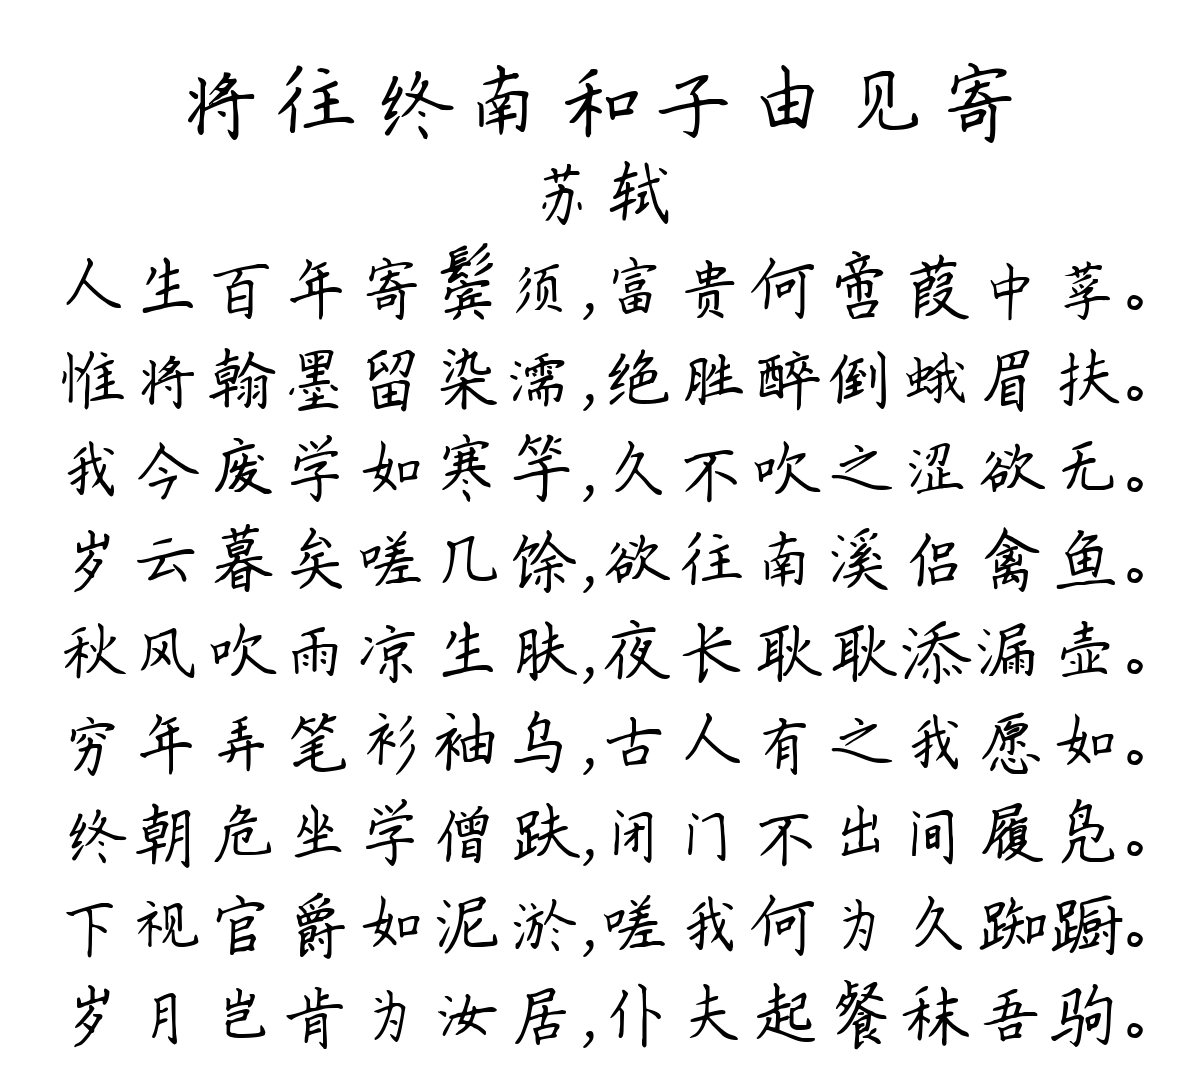 将往终南和子由见寄
苏轼
人生百年寄鬓须,富贵何啻葭中莩。
惟将翰墨留染濡,绝胜醉倒蛾眉扶。
我今废学如寒竽,久不吹之涩欲无。
岁云暮矣嗟几馀,欲往南溪侣禽鱼。
秋风吹雨凉生肤,夜长耿耿添漏壶。
穷年弄笔衫袖乌,古人有之我愿如。
终朝危坐学僧趺,闭门不出间履凫。
下视官爵如泥淤,嗟我何为久踟蹰。
岁月岂肯为汝居,仆夫起餐秣吾驹。